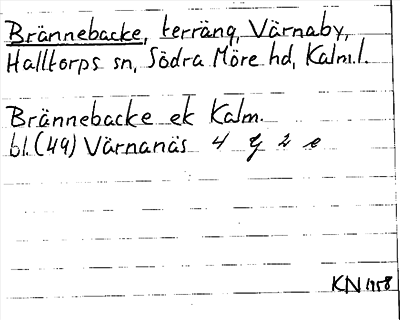 Brännebacke, terräng, Värnaby,
Halltorps sn, Södra Möre hd, Kalm.l.
Brännebacke ek Kalm.
bl.(49) Värnanäs 4 g 2 e
KN 1958